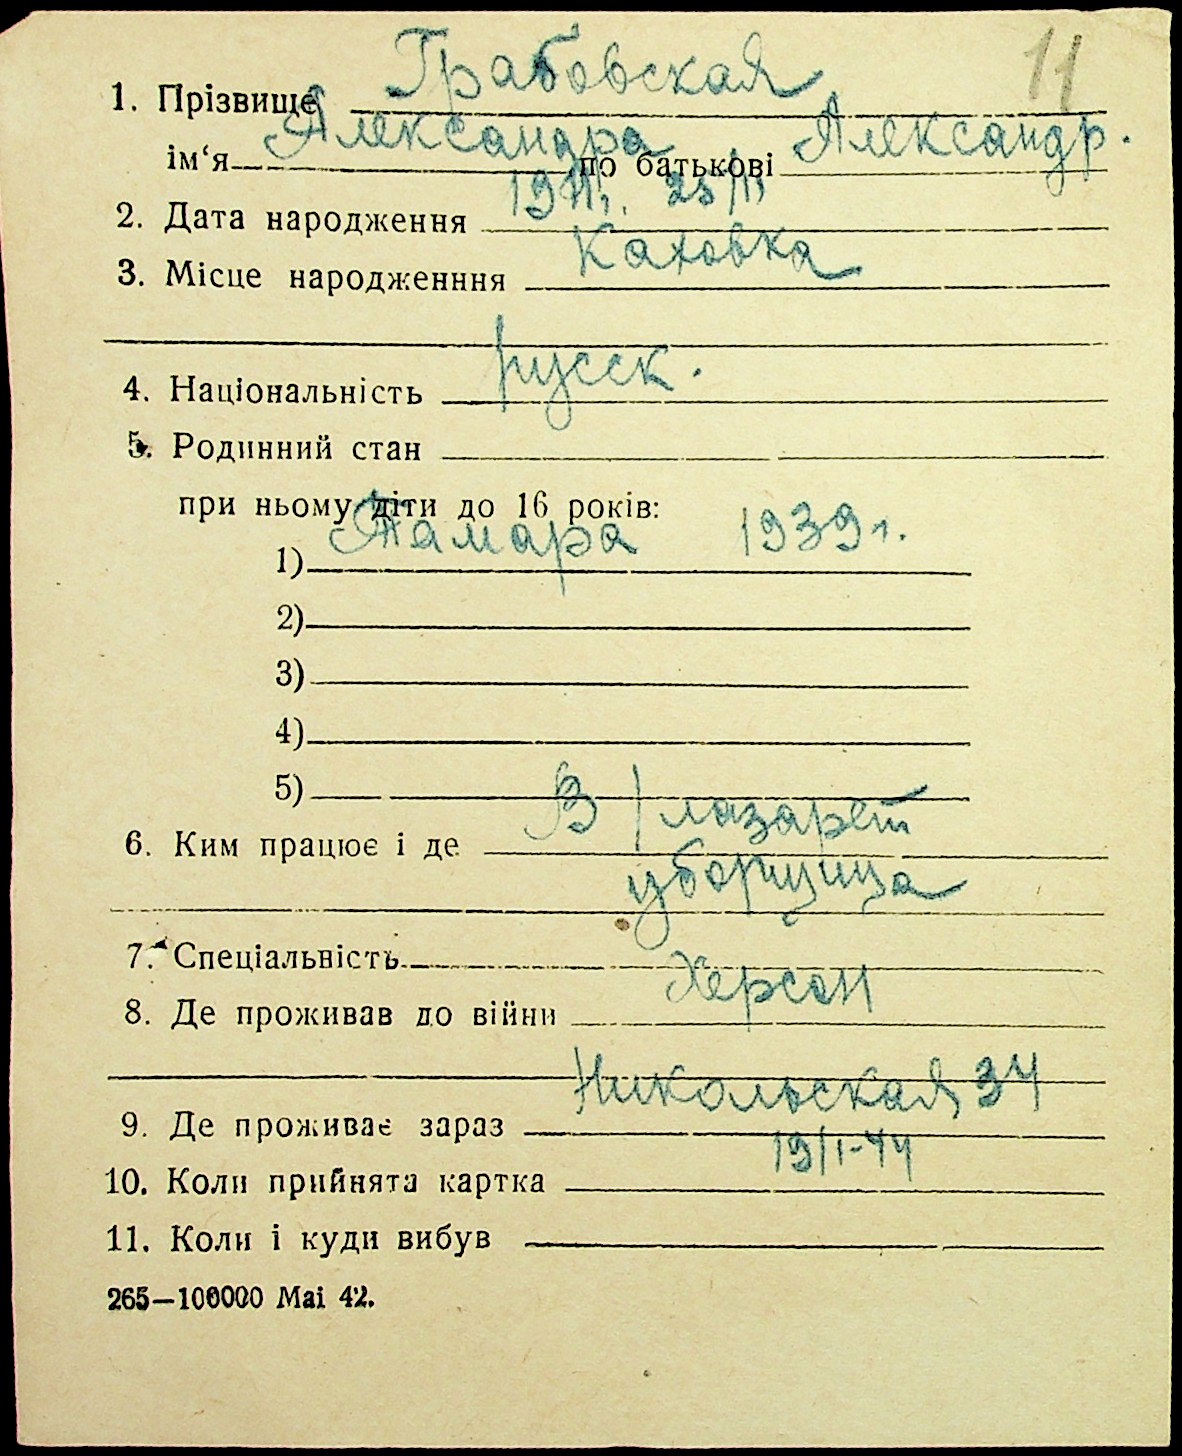 11
1. Прізвище Грабовская
ім‘я Александра по батькові Александр.
2. Дата народження 1911г. 23/III
3. Місце народженння Каховка
4. Національність русск.
5. Родинний стан
при ньому діти до 16 років:
1) Тамара 1939 г.
2)
3)
4)
5)
6. Ким працює і де В/лазарет
уборщица
7. Спеціальність
8. Де проживав до війни Херсон
9. Де проживає зараз Никольская 34
10. Коли прийнята картка 19/I-44
11. Коли і куди вибув
265—100000 Маі 42.